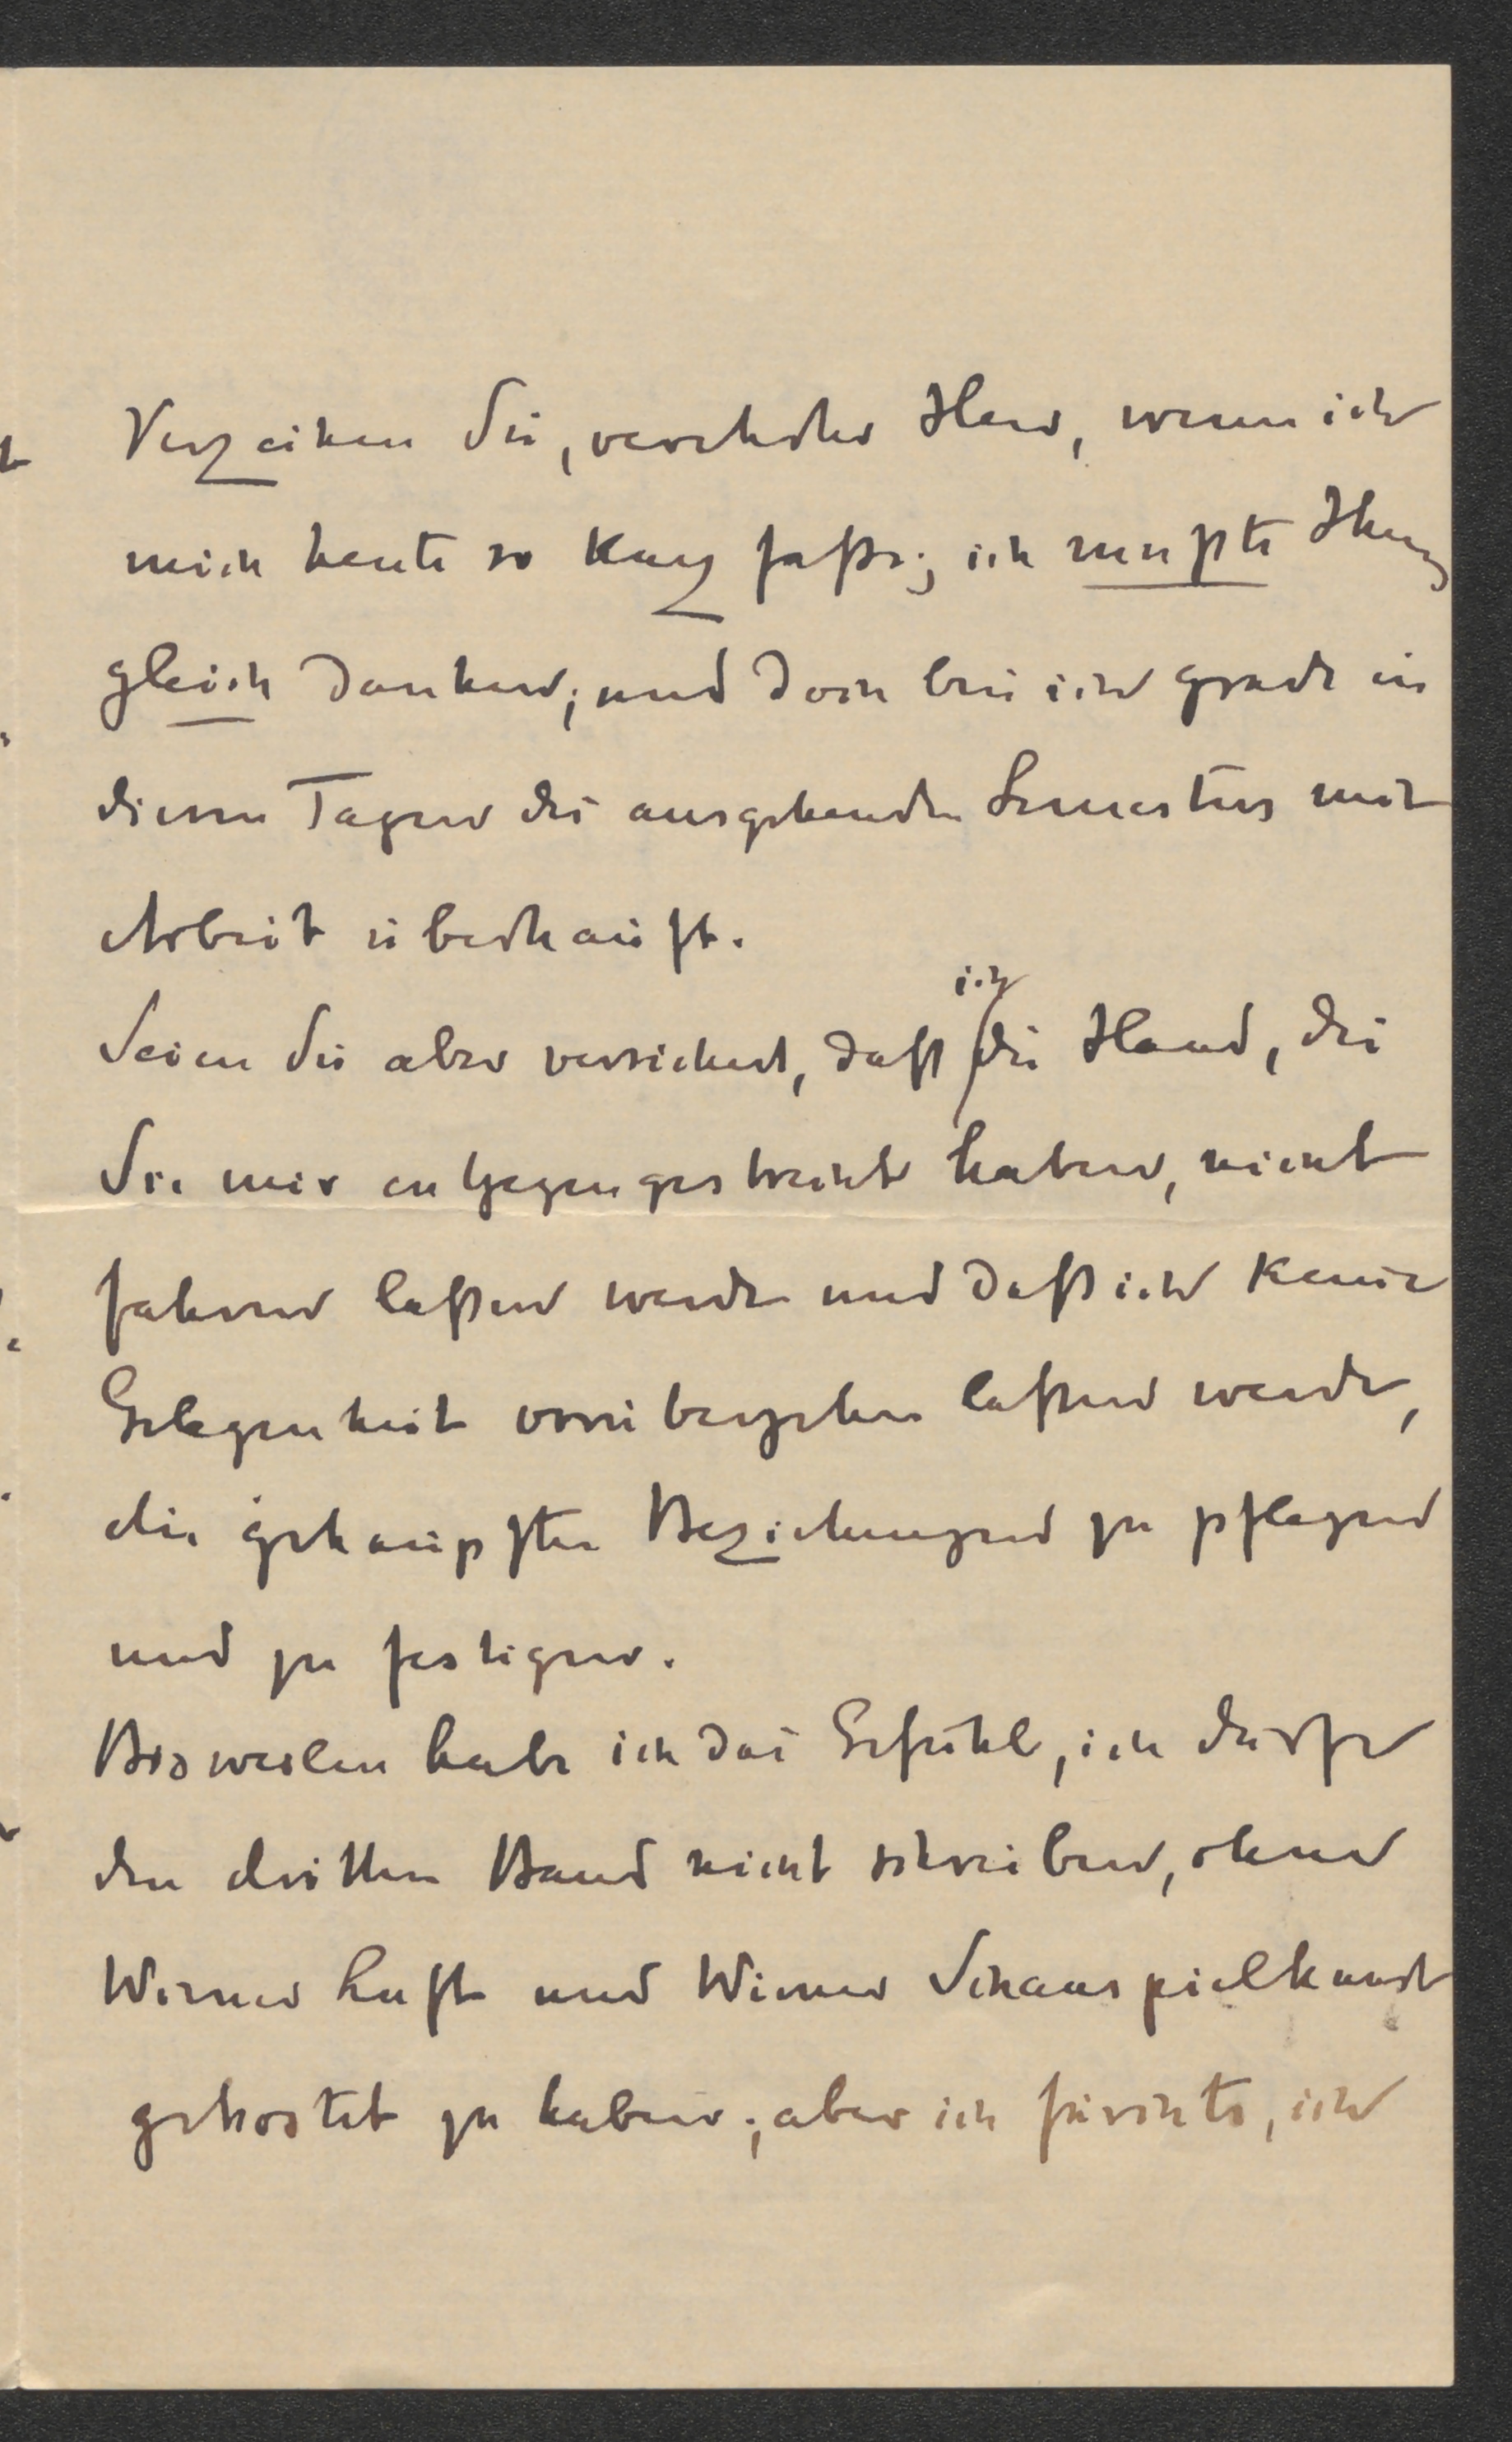 Verzeihen Sie, verehrter Herr, wenn ich
mich heute so kurz faße; ich mußte Ihnen
gleich danken; und doch bin ich grade in
diesen Tagen des ausgehenden Semesters mit
Arbeit überhäuft.
ich
Seien Sie aber versichert, daß die Hand, die
Sie mir entgegengestreckt haben, nicht
fahren laßen werde und daß ich keine
Gelegenheit vorübergehen laßen werde,
die geknüpften Beziehungen zu pflegen
und zu festigen.
Bisweilen habe ich das Gefühl, ich dürfe
den dritten Band nicht schreiben, ohne
Wiener Luft und Wiener Schauspielkunst
gekostet zu haben; aber ich fürchte, ich